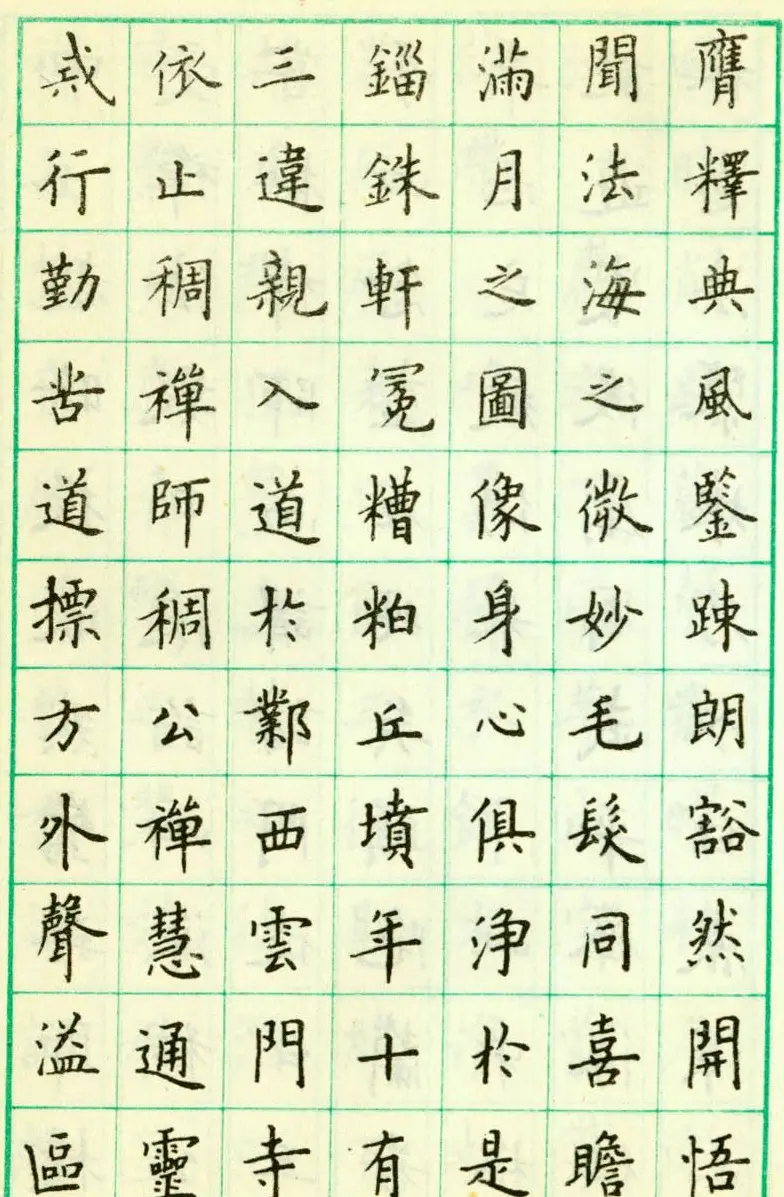 膺釋典風鑒踈朗豁然開悟
聞法海之微妙毛髮同喜瞻
滿月之圖像身心俱浄於是
錙銖軒冕糟粕丘墳年十有
三違親入道於鄴西雲門寺
依止稠禪師稠公禪慧通靈
戒行勤苦道摽方外聲溢區